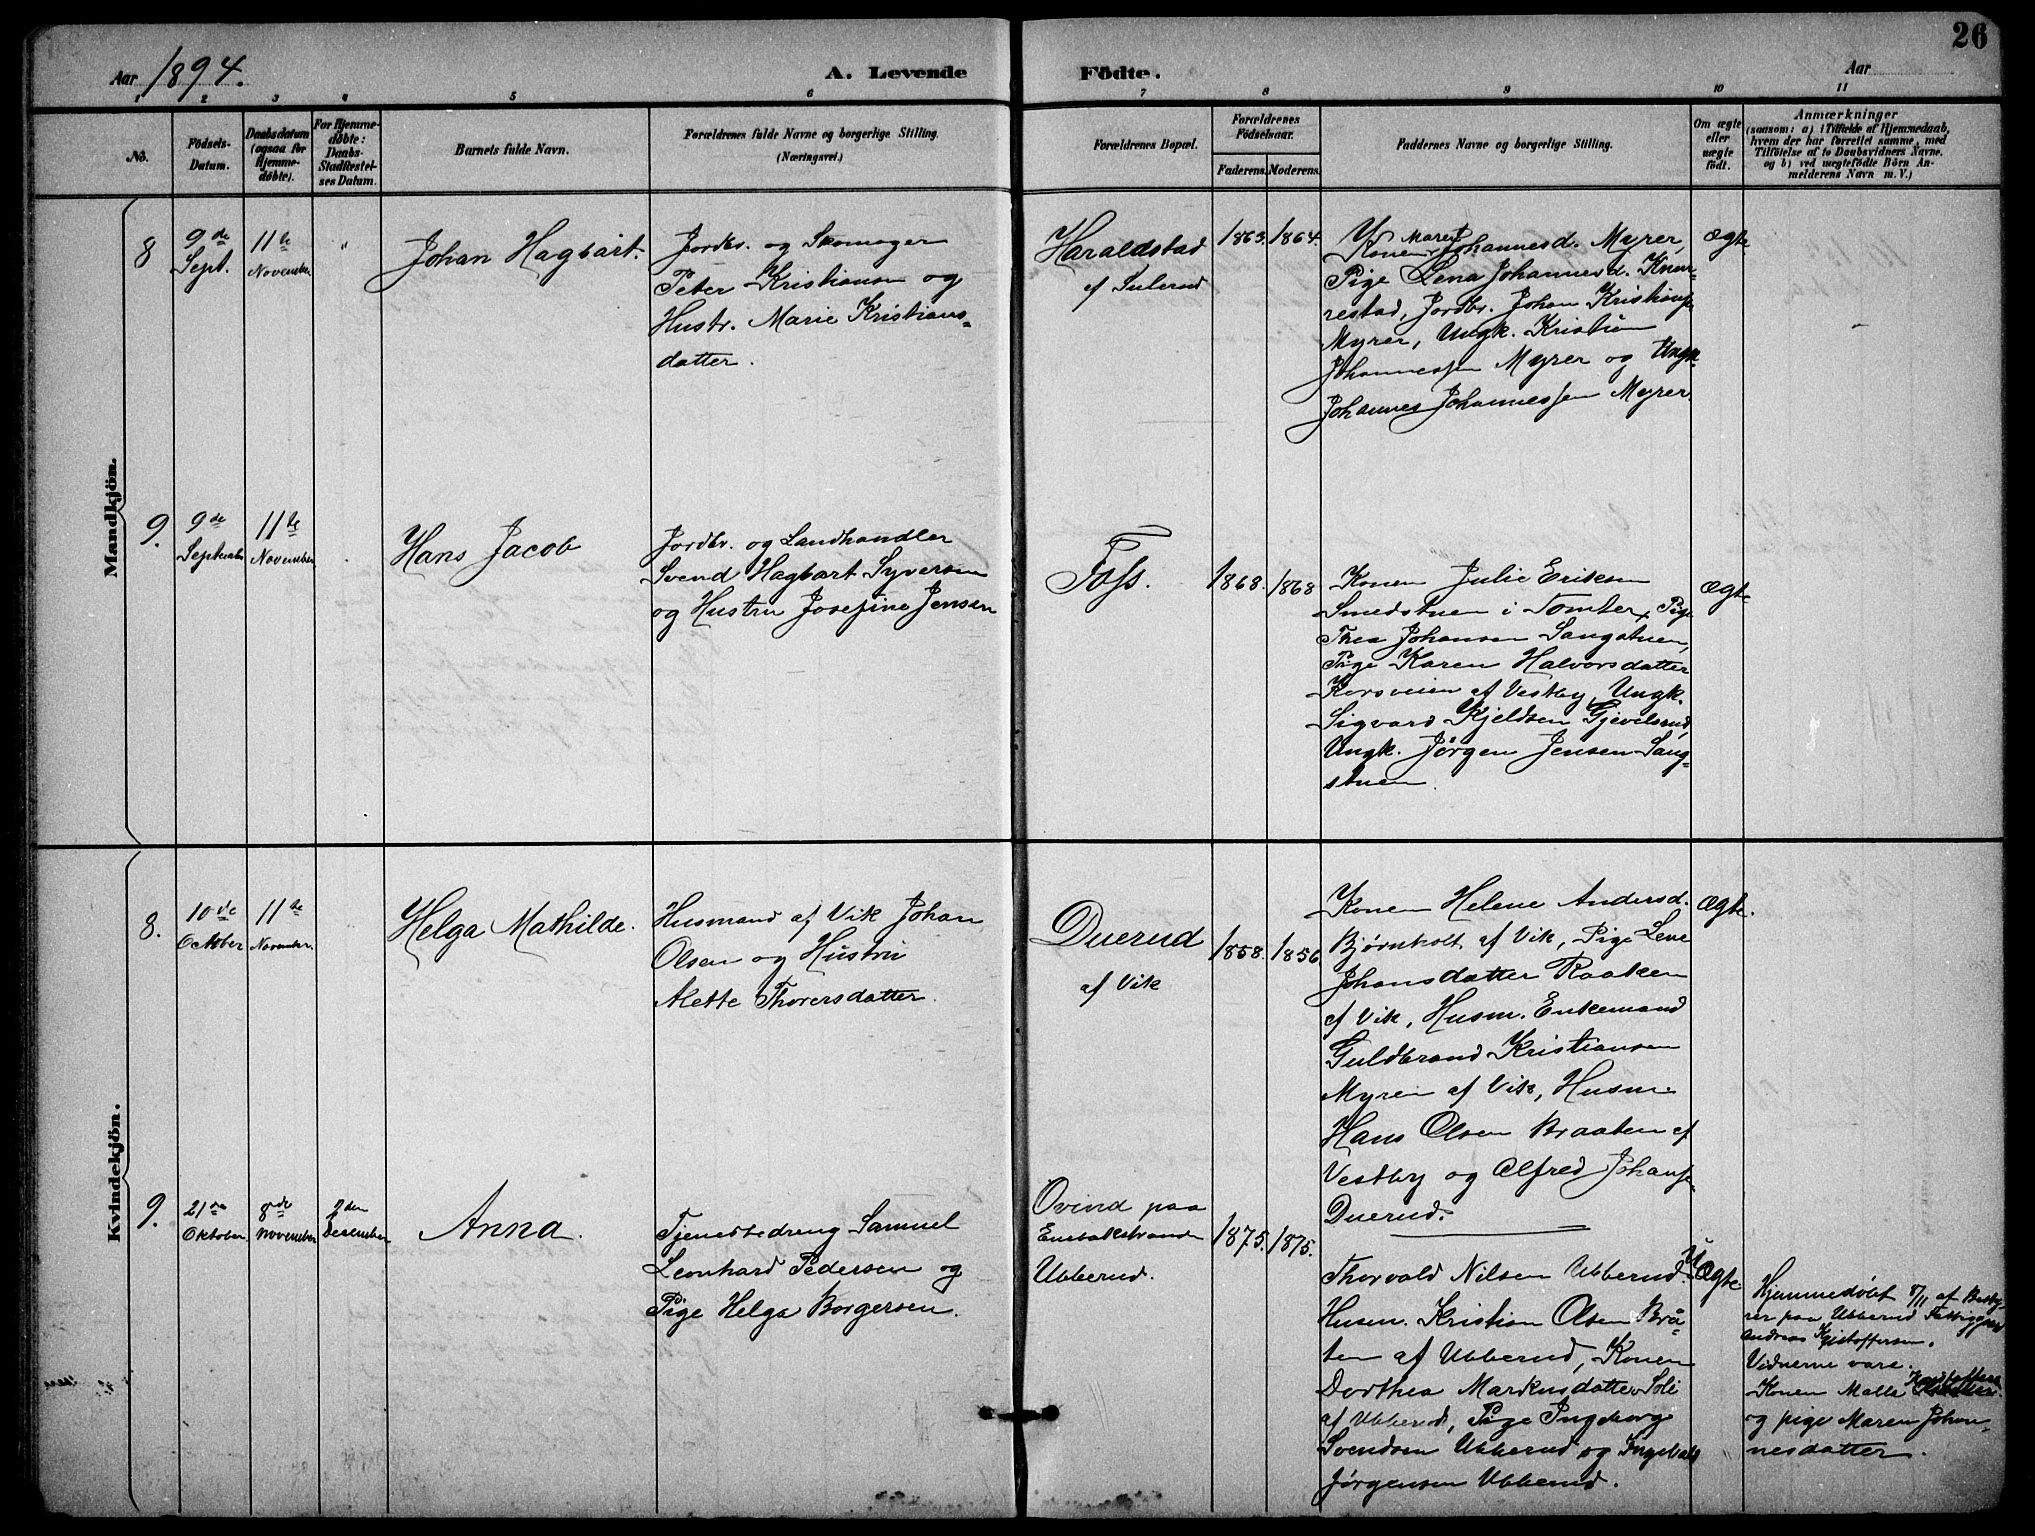 26
Aar 1894.
A. Levende Födte.
Aar
1 2 3 4 5 6 7 8 9 10 11
No.
Födsels-
Datum.
Daabsdatum
(ogsaa for
Hjemme-
døbte).
For Hjemme-
døbte:
Daabs-
Stadfæstel-
ses Datum.
Barnets fulde Navn.
Forældrenes fulde Navne og borgerlige Stilling.
(Næringsvei.)
Forældrenes Bopæl.
Forældrenes
Födselsaar.
Faderens. Moderens.
Faddernes Navne og borgerlige Stilling.
Om ægte
eller
uægte
födt.
Anmærkninger
(saasom: a) i Tilfælde af Hjemmedaab,
hvem der har forrettet samme, med
Tilföielse af to Daabsvidners Navne,
og b) ved uægtefödte Börn An-
melderens Navn m. V.)
Mandkjön.
8
9de
Sept.
11te
November
"
Johan Hagbart.
Jordbr. og Skomager
Peter Kristiansen og
Hustr. Marie Kristians-
datter.
Haraldstad
af Sulerud
1863. 1864.
Konen Maren Johannesd. Myrer,
Pige Lena Johannesd. Knar-
restad, Jordbr. Johan Kristians.
Myrer, Ungk. Kristian
Johannessen Myrer og Ungk.
Johannes Johannessen Myrer.
Ægte
9.
9de
Septembr
11te
November
Hans Jacob
Jordbr. og Landhandler
Svend Hagbart Syversen
og Hustru Josefine Jensen
Foss.
1868. 1868
Konen Julie Eriksen
Smedstuen i Tomter, Pige
Thea Johansen Sangstuen,
Pige Karen Halvorsdatter
Korsveien af Vestby, Ungk.
Sigvard Kjeldsen Gjevelsrud,
Ungk. Jørgen Jensen Sang-
stuen.
Ægte
Kvindekjön.
8.
10de
October
11te
November.
Helga Mathilde.
Husmand af Vik Johan
Olsen og Hustru
Mette Thorersdatter.
Duerud
af Vik
1858. 1856
Konen Helene Andersd.
Bjørnholt af Vik, Pige Lene
Johansdatter Raaken
af Vik, Husm. Enkemand
Guldbrand Kristiansen
Myren af Vik, Husm.
Hans Olsen Braaten af
Vestby og Alfred Johans.
Duerud.
Ægte.
9.
21de
Oktober
8de
November
2den
December
Anna.
Tjenestedreng Samuel
Leonhard Pedersen og
Pige Helga Borgersen.
Ovind paa
Ubberud.
1875. 1875.
Thorvald Nilsen Ubberud,
Husm. Kristian Olsen Brå-
ten af Ubberud, Konen
Dorthea Markusdatter Soli
af Ubberud, Pige Ingeborg
Svendsen Ubberud og
Jørgensen Ubberud.
UÆgte.
Hjemmedøbt 8/11 af Besty-
rer paa Ubberud Fattiggaard
Andreas Kristoffersen.
Vidnerne vare:
Konen Malla
og pige Maren Johan-
nesdatter.